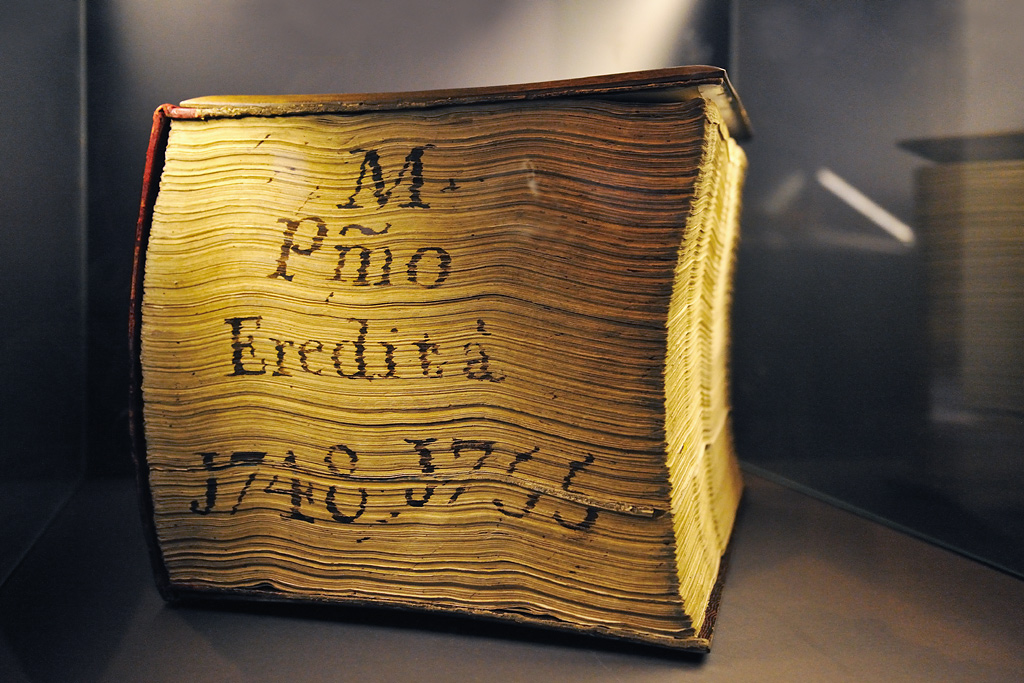 M.
Pm̃o
Eredità
1748.1755